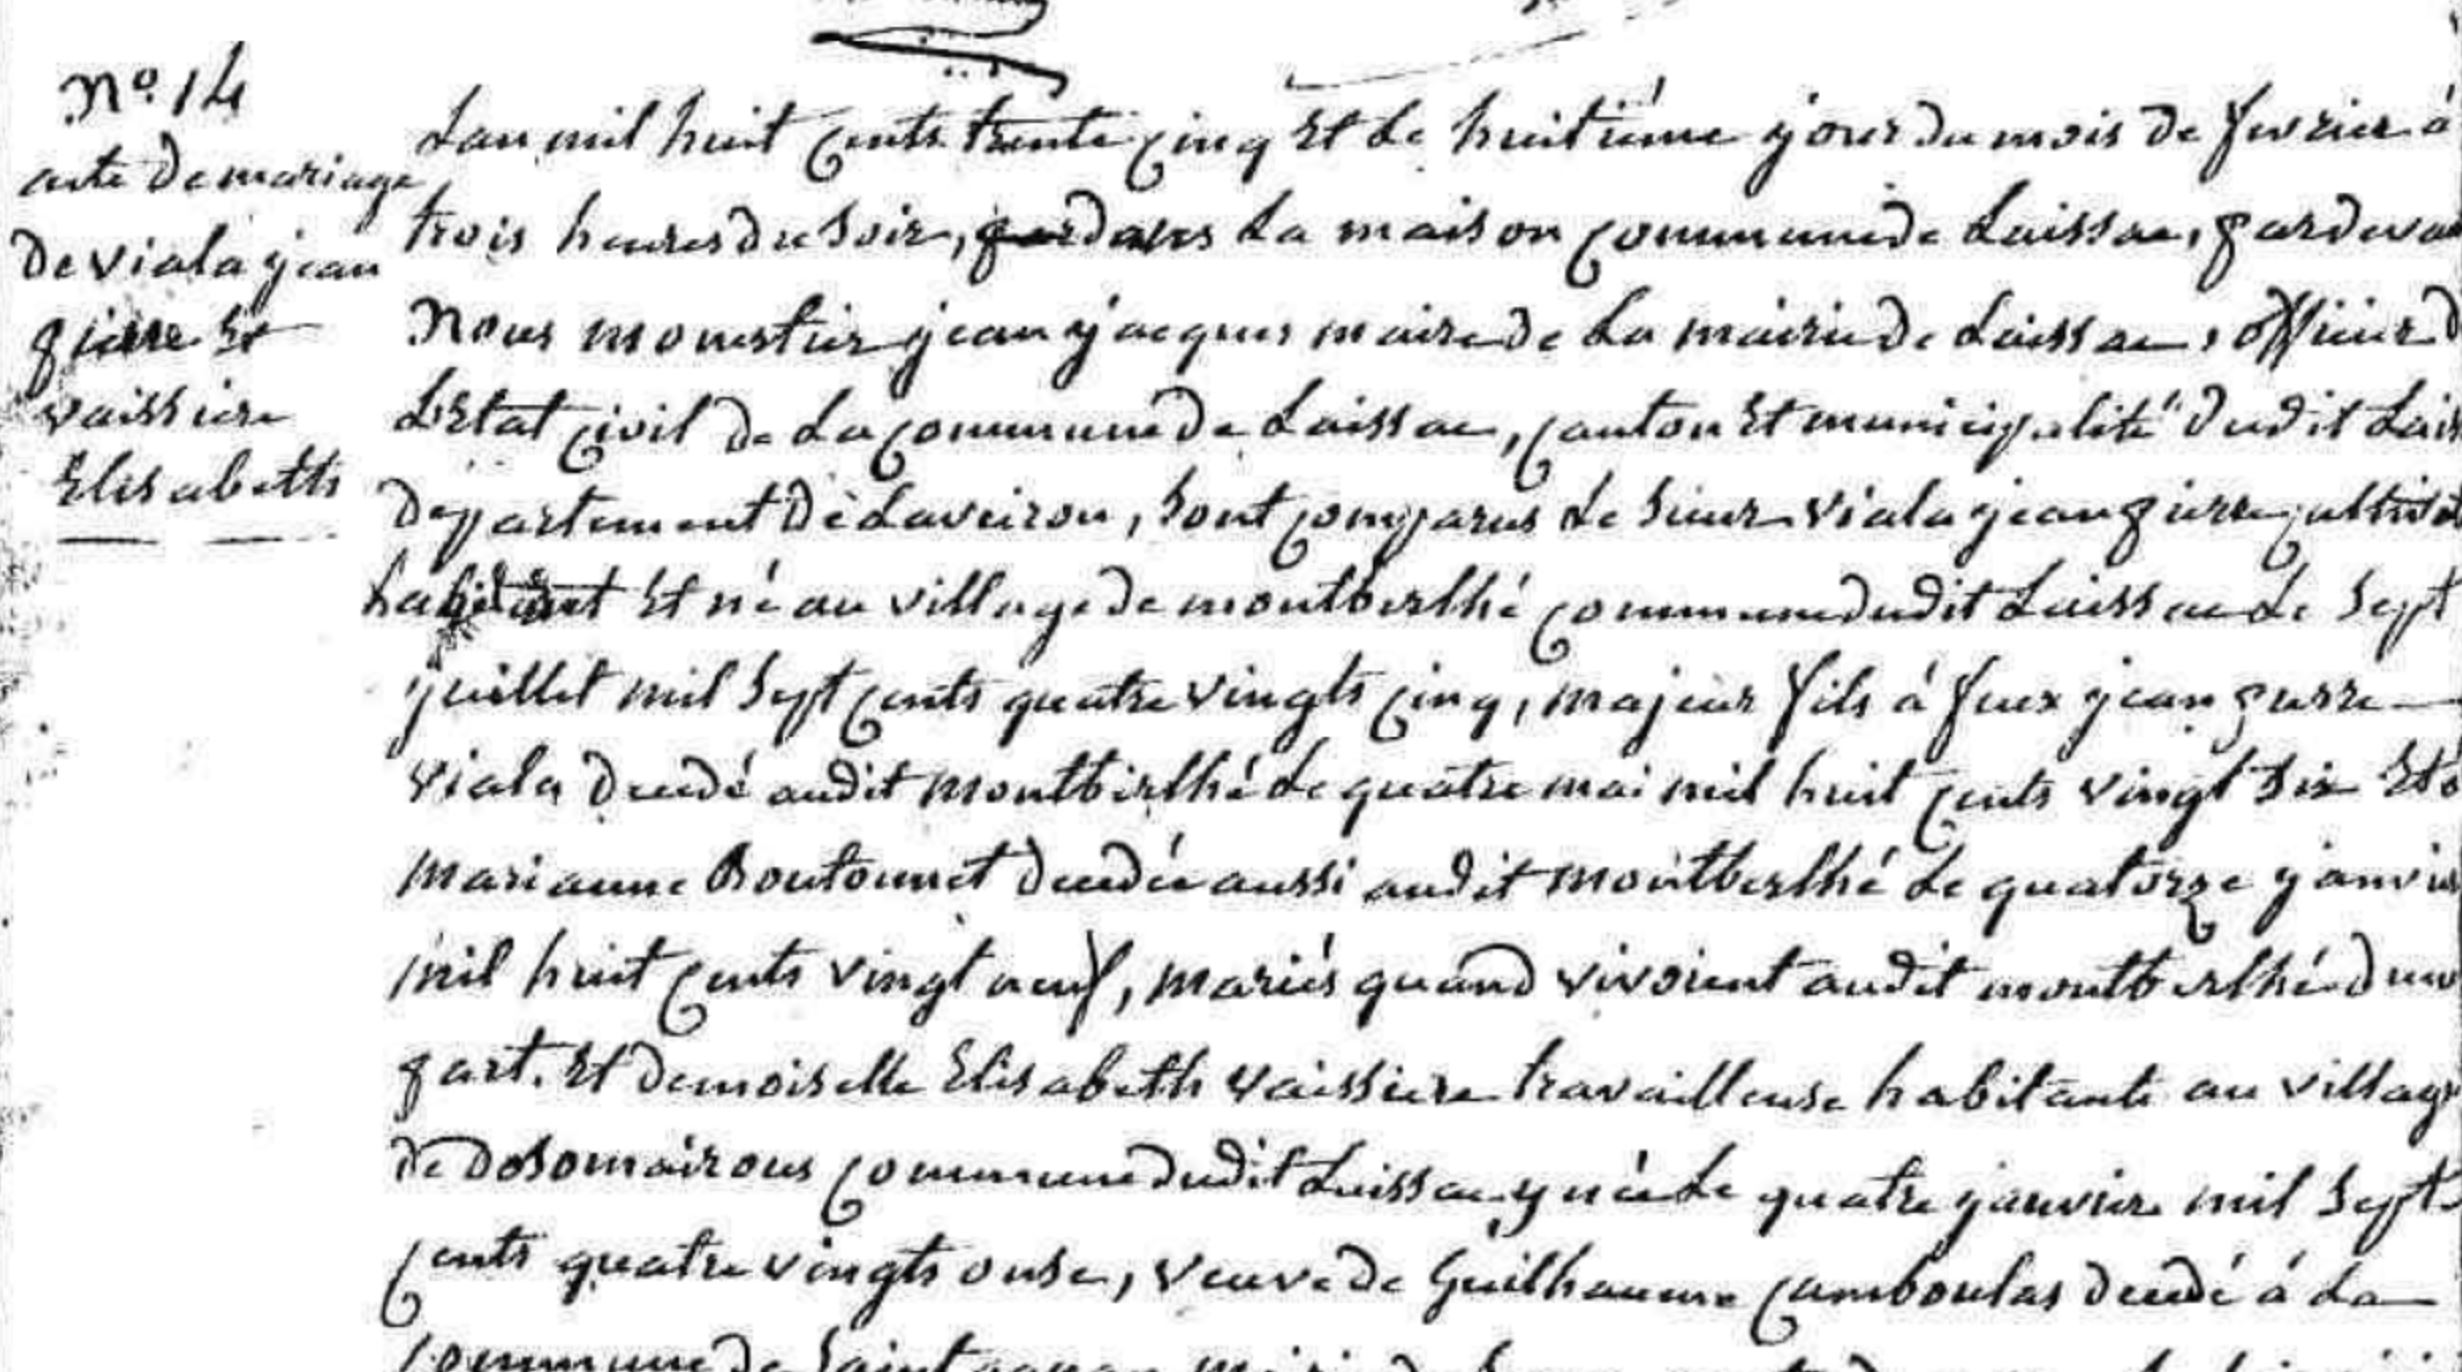 No. 14
acte de mariage
de viala jean
pierre Et
vaissiere
Elisabeth
Lan mil huit cents trente cinq Et Le huitième jour du mois de fevrier à
trois heures du Soir, dans La maison commune de Laissac, pardevan
Nous monestier jean jacques maire de La mairie de Laissac, officier d
LEtat civil de La commune de Laissac, canton Et municipalité dudit Lais
departement de Laveiron, Sont comparus Le Sieur viala jean pierre cultivat
habitant Et né au village de montberthé commune dudit Laissac Le Sept
juillet mil Sept cents quatre vingts cinq, majeur fils à feux jean pierre
viala decedé audit montberthé Le quatre mai mil huit cents vingt Six Et
marianne Boutonnet decedée aussi audit montberthé Le quatorze janvier
mil huit cents vingt neuf, mariés quand vivoient audit montberthé dune
part. Et demoiselle Elisabeth vaissiere travailleuse habitante au village
de dosomairous commune dudit Laissac y née Le quatre janvier mil Sept
cents quatre vingts onse, veuve de Guilhaume Camboulas decedé à La
commune de Saint